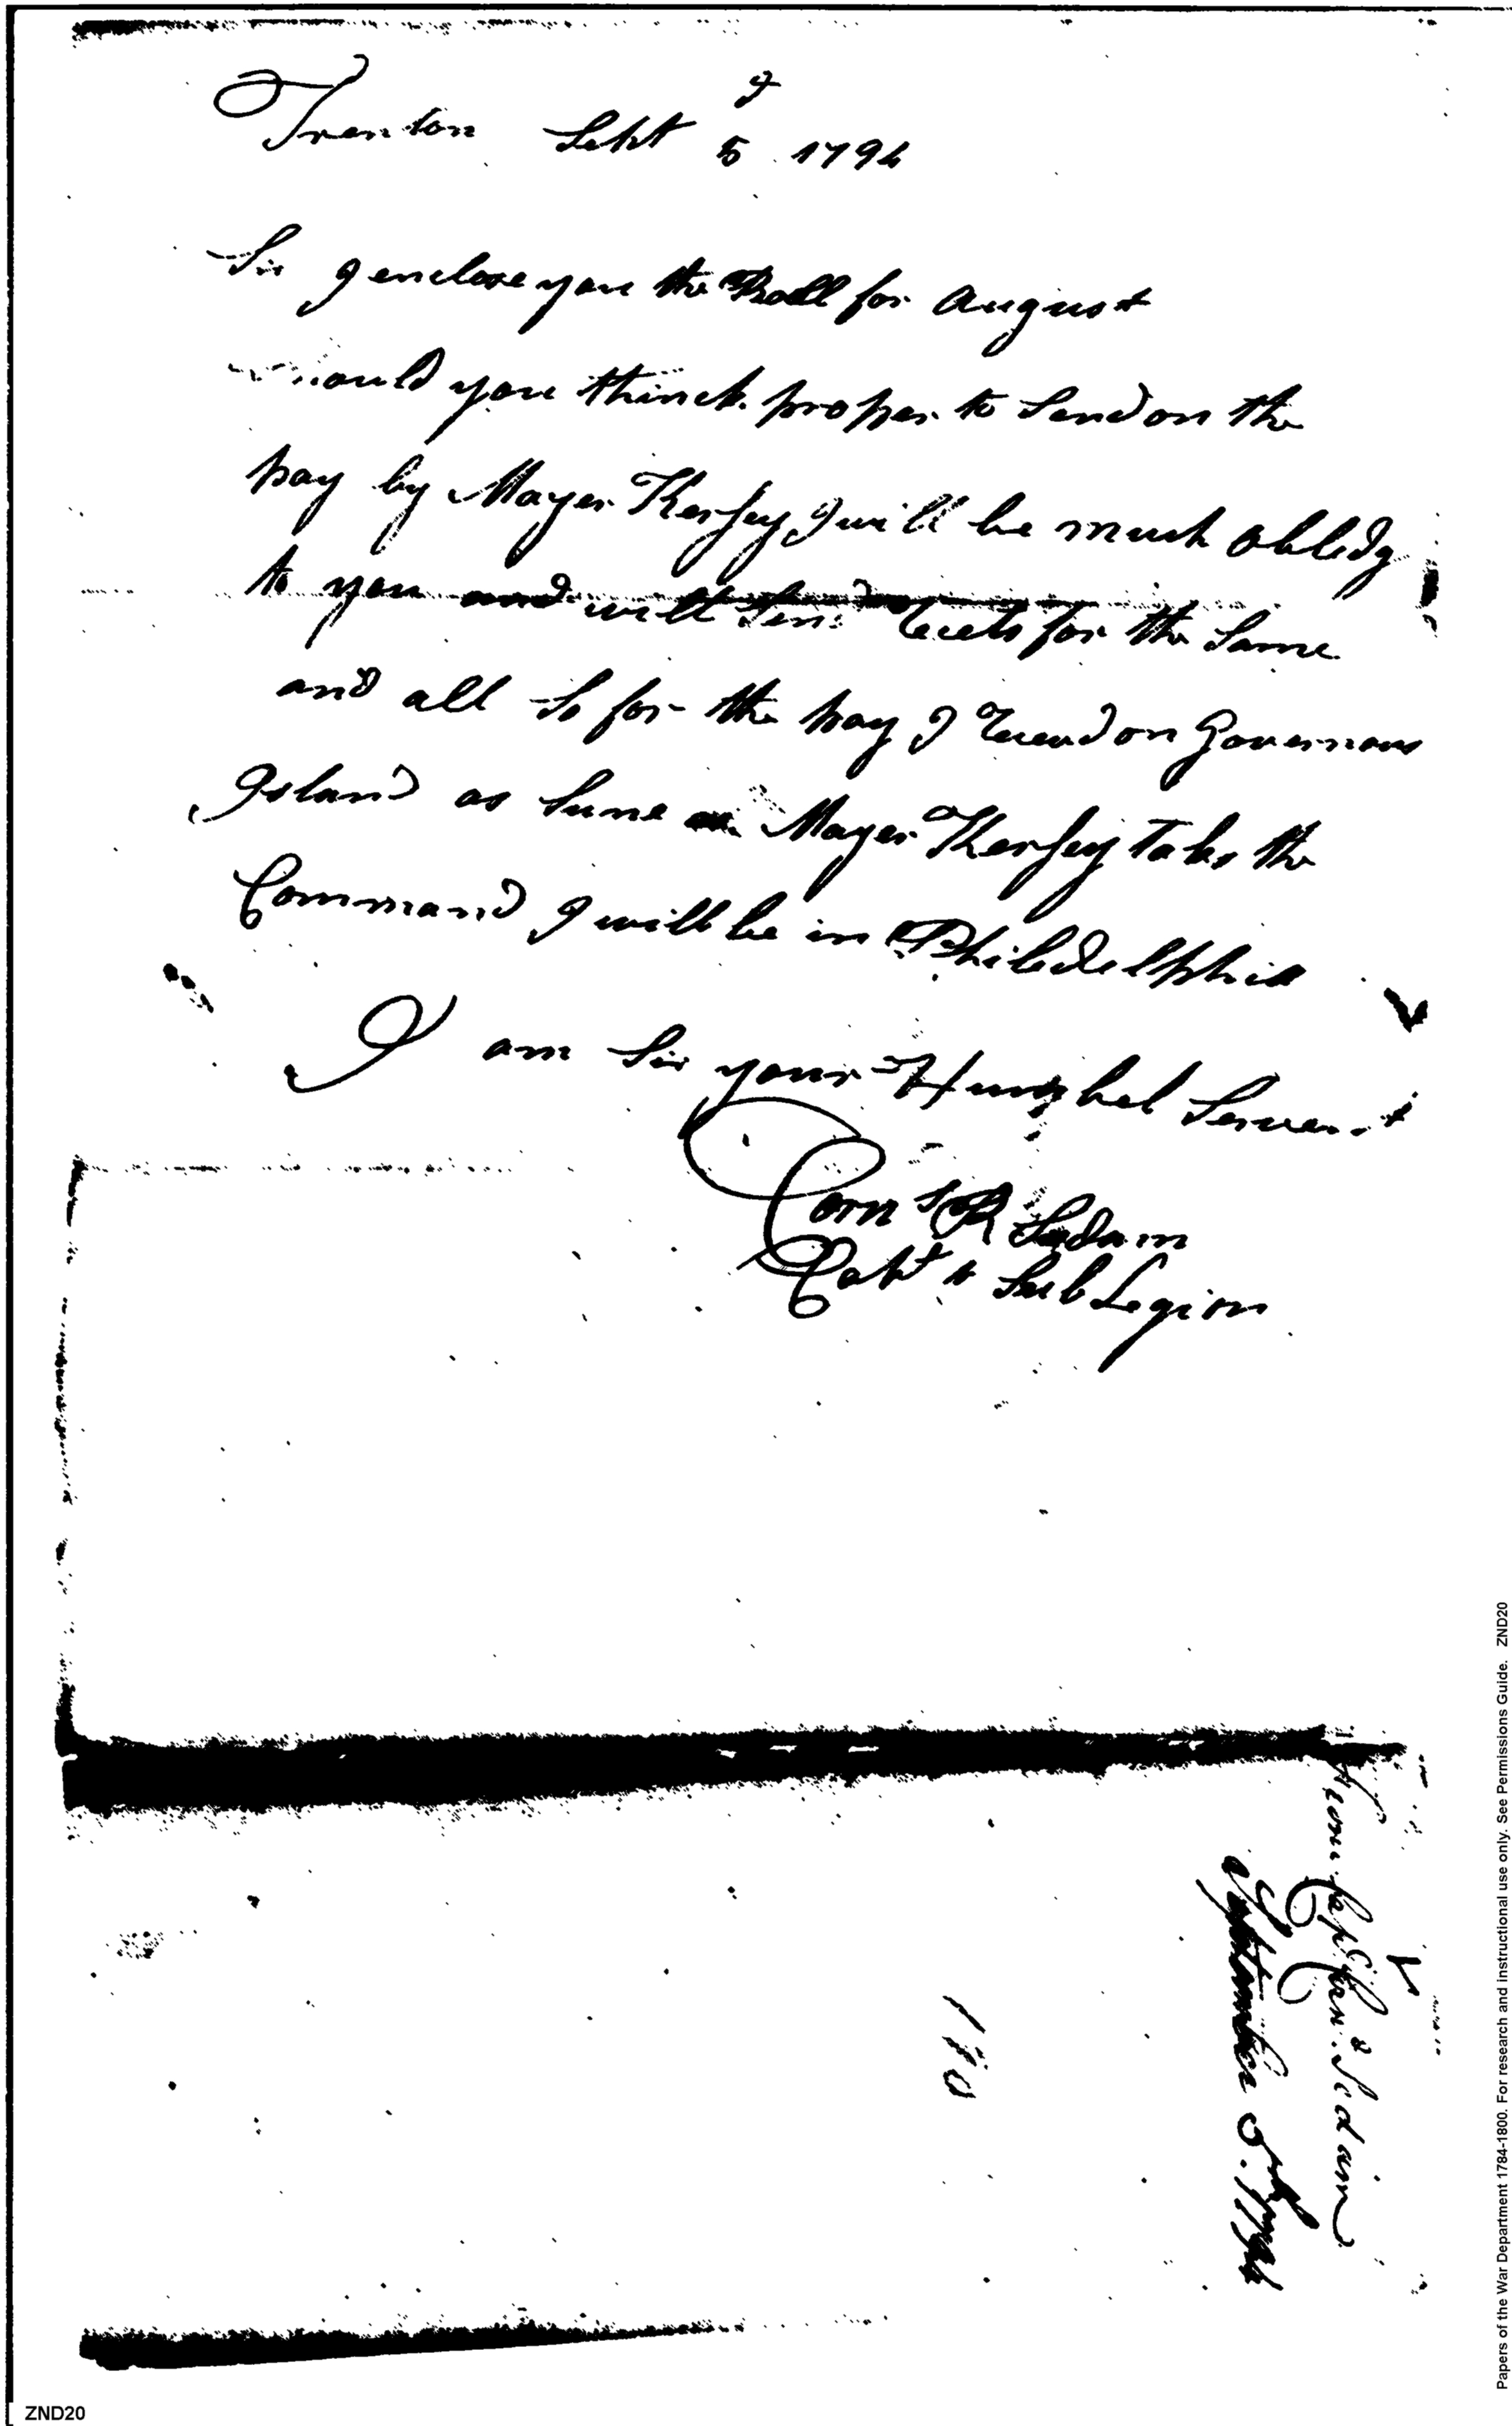 Trenton Sept 5 1794
Sir I enclose you the Roll for August
would you thinck proper to Send on the
pay by Mayer Kersey I will be much obledg
to you and will Send Recets for the Same
and all So for the pay I Reced on Governors
Island as Sune as Mayer Kersey Takes the
Command I will be in Philedelphia
I am Sir your Humbel Servent
Corn R Sedam
Capt 1 Sub Legion
From Cap Corn Sedam
September 5. 1794
Papers of the War Department 1784-1800. For research and instructional use only. See Permissions Guide. ZND20
ZND20